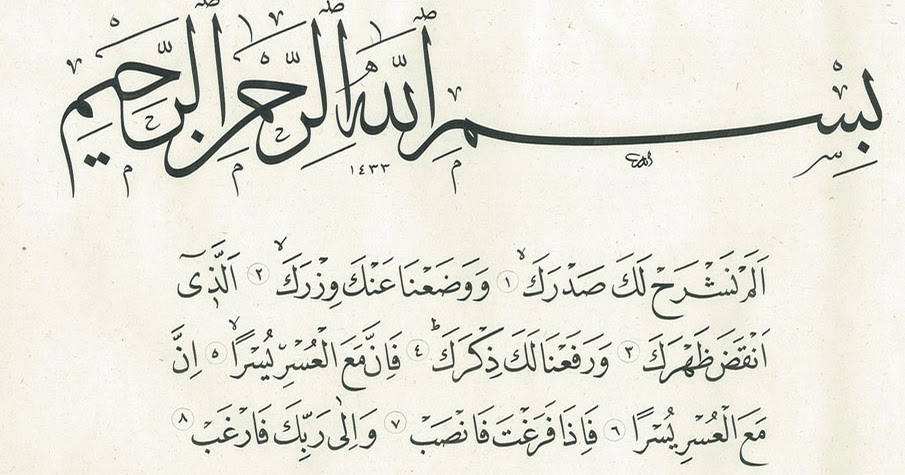 بِسْمِ اللّٰهِ الرَّحْمٰنِ الرَّحِيمِ
١٤٣٣
اَلَمْ نَشْرَحْ لَكَ صَدْرَكَ ١ وَوَضَعْنَا عَنْكَ وِزْرَكَ ٢ اَلَّذ۪ٓى
اَنْقَضَ ظَهْرَكَ ٣ وَرَفَعْنَا لَكَ ذِكْرَكَ ٤ فَاِنَّ مَعَ الْعُسْرِ يُسْرًا ٥ اِنَّ
مَعَ الْعُسْرِ يُسْرًا ٦ فَاِذَا فَرَغْتَ فَانْصَبْ ٧ وَاِلٰى رَبِّكَ فَارْغَبْ ٨